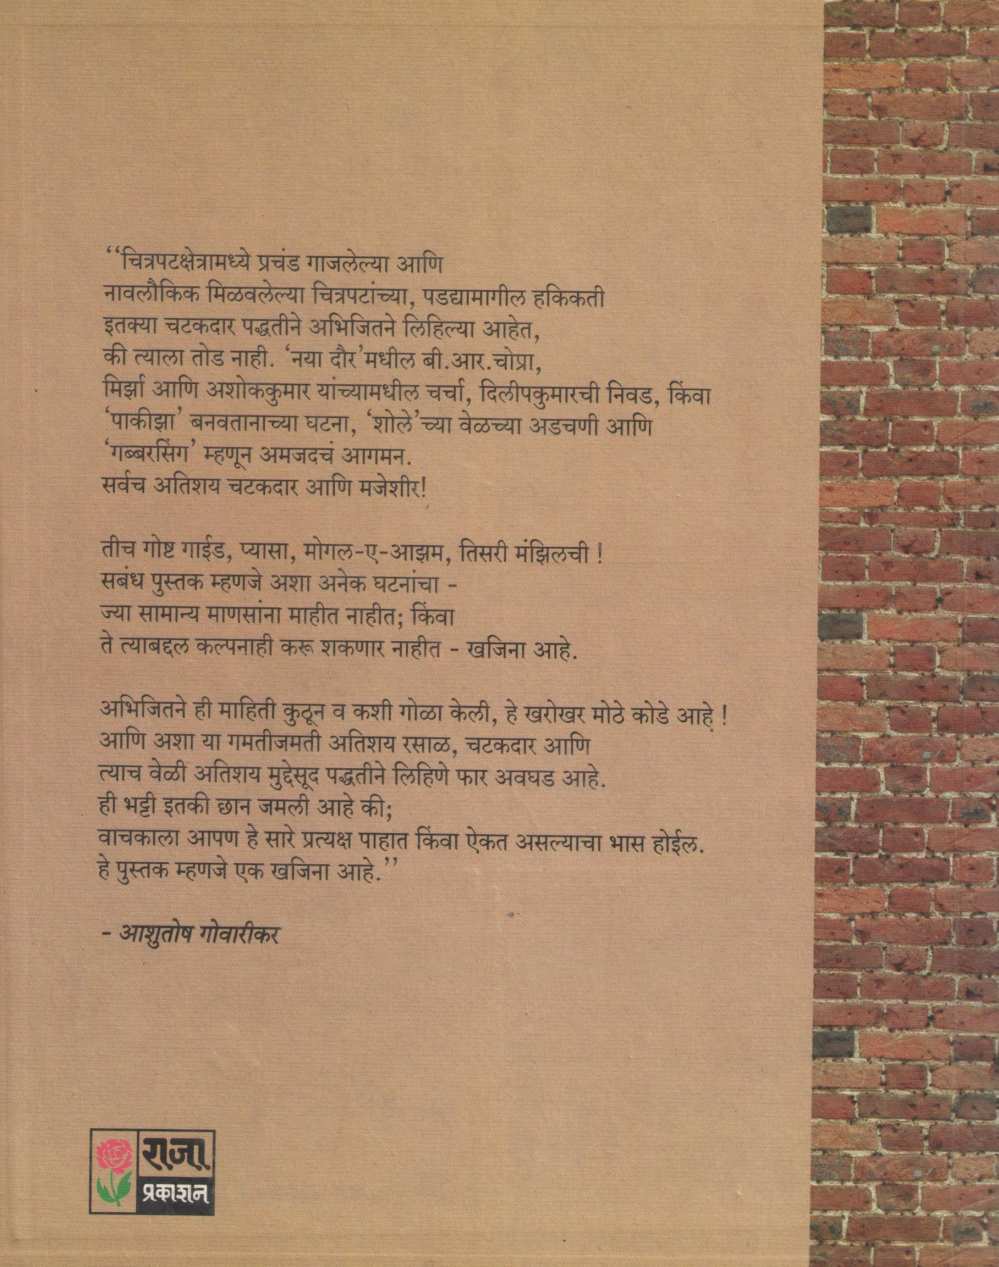 “चित्रपटक्षेत्रामध्ये प्रचंड गाजलेल्या आणि
नावलौकिक मिळवलेल्या चित्रपटांच्या, पडद्यामागील हकिकती
इतक्या चटकदार पद्धतीने अभिजितने लिहिल्या आहेत,
की त्याला तोड नाही. ‘नया दौर’मधील बी.आर.चोप्रा,
मिर्झा आणि अशोककुमार यांच्यामधील चर्चा, दिलीपकुमारची निवड, किंवा
‘पाकीझा’ बनवतानाच्या घटना, ‘शोले’च्या वेळच्या अडचणी आणि
‘गब्बरसिंग’ म्हणून अमजदचं आगमन.
सर्वच अतिशय चटकदार आणि मजेशीर!
तीच गोष्ट गाईड, प्यासा, मोगल-ए-आझम, तिसरी मंझिलची !
सबंध पुस्तक म्हणजे अशा अनेक घटनांचा -
ज्या सामान्य माणसांना माहीत नाहीत; किंवा
ते त्याबद्दल कल्पनाही करू शकणार नाहीत - खजिना आहे.
अभिजितने ही माहिती कुठून व कशी गोळा केली, हे खरोखर मोठे कोडे आहे !
आणि अशा या गमतीजमती अतिशय रसाळ, चटकदार आणि
त्याच वेळी अतिशय मुद्देसूद पद्धतीने लिहिणे फार अवघड आहे.
ही भट्टी इतकी छान जमली आहे की;
वाचकाला आपण हे सारे प्रत्यक्ष पाहात किंवा ऐकत असल्याचा भास होईल.
हे पुस्तक म्हणजे एक खजिना आहे.”
- आशुतोष गोवारीकर
राजा
प्रकाशन